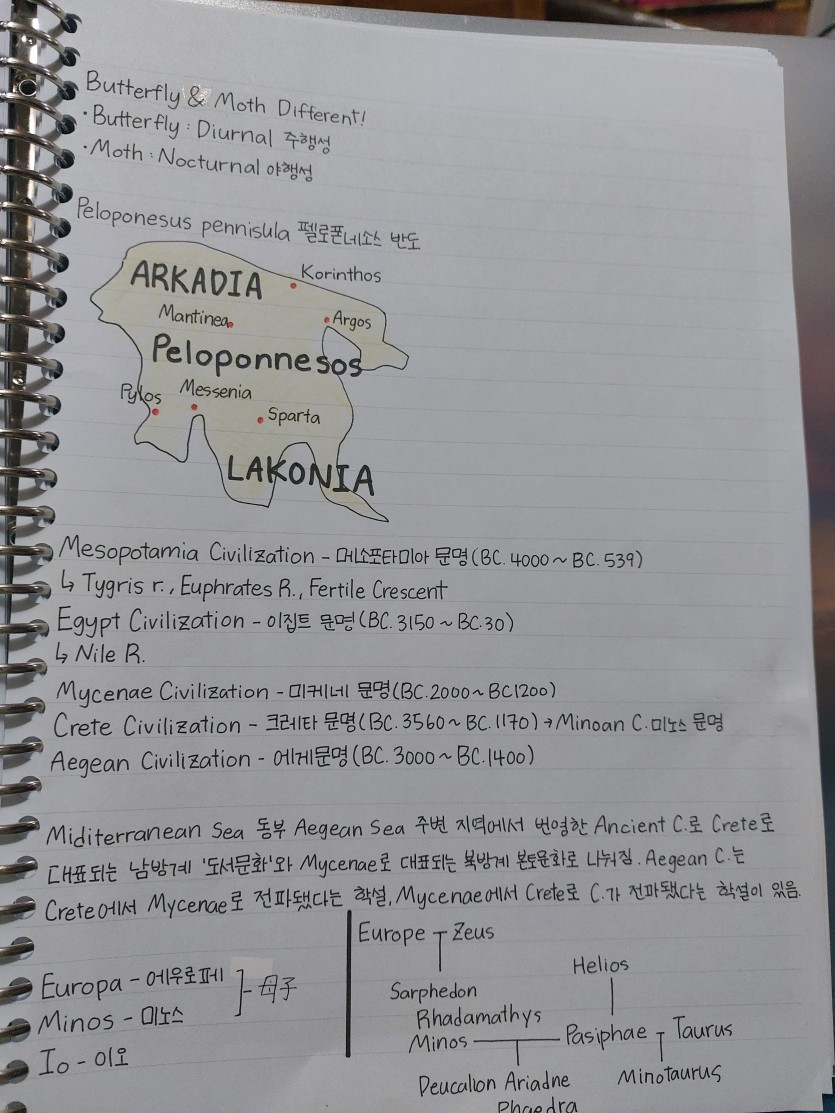 Butterfly & Moth Different!
· Butterfly : Diurnal 주행성
· Moth : Nocturnal 야행성
Peloponesus pennisula 펠로폰네소스 반도
ARKADIA
Korinthos
Mantinea
Argos
Peloponnesos
Pylos
Messenia
Sparta
LAKONIA
Mesopotamia Civilization - 메소포타미아 문명(BC. 4000 ~ BC. 539)
↳ Tygris r., Euphrates R., Fertile Crescent
Egypt Civilization - 이집트 문명(BC. 3150 ~ BC.30)
↳ Nile R.
Mycenae Civilization - 미케네 문명(BC.2000~BC1200)
Crete Civilization - 크레타 문명(BC. 3560~ BC. 1170) → Minoan C. 미노스 문명
Aegean Civilization - 에게문명(BC. 3000 ~ BC.1400)
Miditerranean Sea 동부 Aegean Sea 주변 지역에서 번영한 Ancient C.로 Crete로
대표되는 남방계 '도서문화'와 Mycenae로 대표되는 북방계 본토문화로 나눠짐. Aegean C.는
Crete에서 Mycenae로 전파됐다는 학설, Mycenae에서 Crete로 C.가 전파됐다는 학설이 있음.
Europa - 에우로페
Minos - 미노스
母子
Io - 이오
Europe Zeus
Helios
Sarphedon
Rhadamathys
Minos Pasiphae Taurus
Deucalion Ariadne Minotaurus
Phaedra